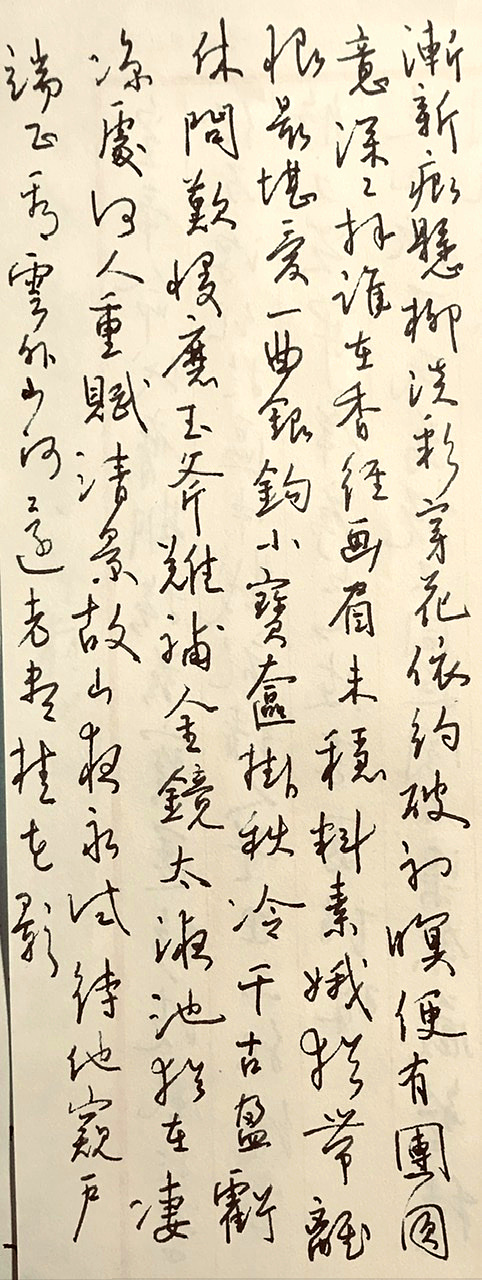 漸新痕懸柳淡彩穿花依約破初暝便有團圓
意深〻拜誰在香徑画眉未穩料素娥猶帶離
恨最堪愛一曲銀鉤小寶奩掛秋冷千古盈虧
休問歎慢磨玉斧難補金鏡太液池猶在淒
涼處何人重賦清景故山夜永試待他窺戶
端正看雲外山河還老盡桂花影